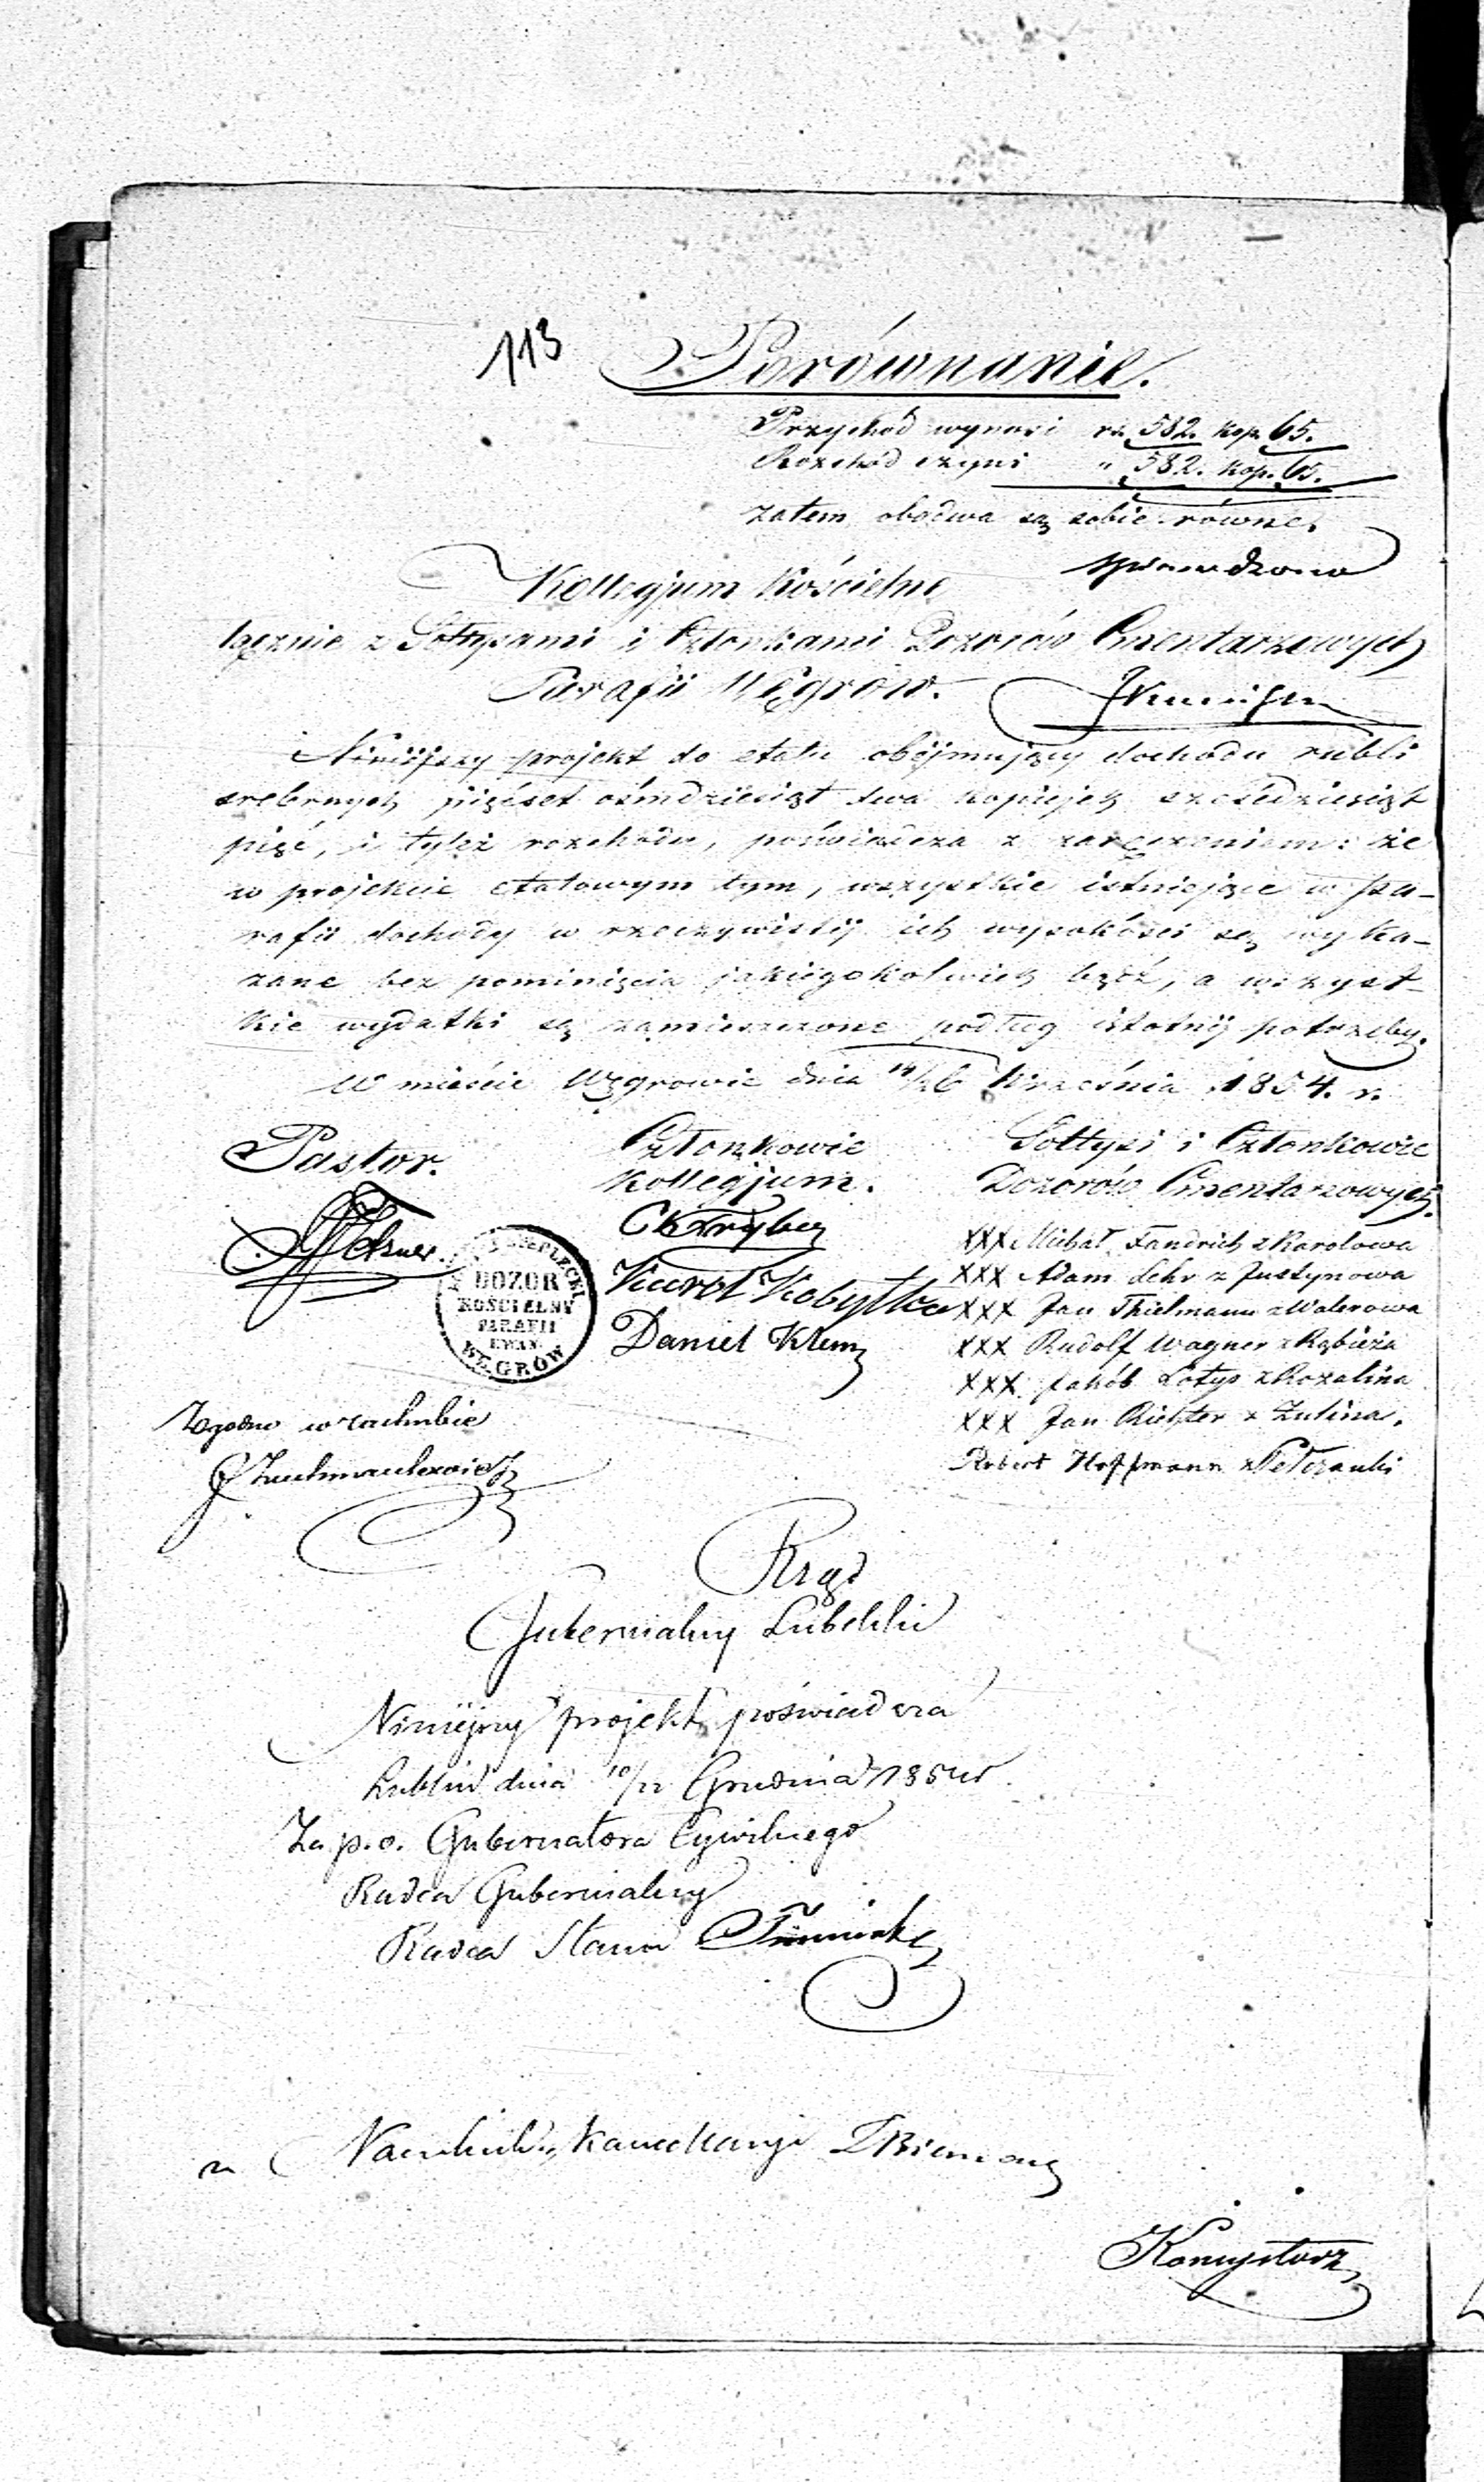 113
Porównanie.
Przychód wynosi rs. 582. kop. 65.
Rozchód czyni " 582. kop. 65.
zatem obadwa są sobie równe.
sprawdzono
Kollegjum Kościelne
łącznie z Sołtysami i Członkami Dozorów Cmentarzowych
Parafii Węgrów.
Niniejszy projekt do etatu obejmujący dochodu rubli
srebrnych pięćset ośmdziesiąt dwa kopiejek sześćdziesiąt
pięć, i tyleż rozchodu, poświadcza z zaręczeniem: że
w projekcie etatowym tym, wszystkie istniejące w pa-
rafii dochody w rzeczywistéj ich wysokości są wyka-
zane bez pominięcia jakiegokolwiek bądź, a wszyst-
kie wydatki są zamieszczone podług istotnéj potrzeby.
W mieście Węgrowie dnia 14/26 Września 1854. r.
Pastor. Członkowie Sołtysi i Członkowie
Kollegjum. Dozorów Cmentarzowych.
DOZOR
KOŚCIELNY
PARAFII
EWAN.
WĘGRÓW
Karol Kobyłka
Daniel Klem
XXX Michał Fandrich z Karolowa
XXX Adam Lehr z Justynowa
XXX Jan Thielmann z Walerowa
XXX Rudolf Wagner z Rąbieża
XXX Jakób Lotys z Rozalina
XXX Jan Richter z Zulina.
Robert Hoffmann z Peterzanki
Zgodno w rachubie
Rząd
Gubernialny Lubelski
Niniejszy projekt poświadcza
Lublin dnia 10/22 Grudnia 1854 r
Za p.o. Gubernatora Cywilnego
Radca Gubernialny
Radca Stanu
Naczelnik Kancellaryi